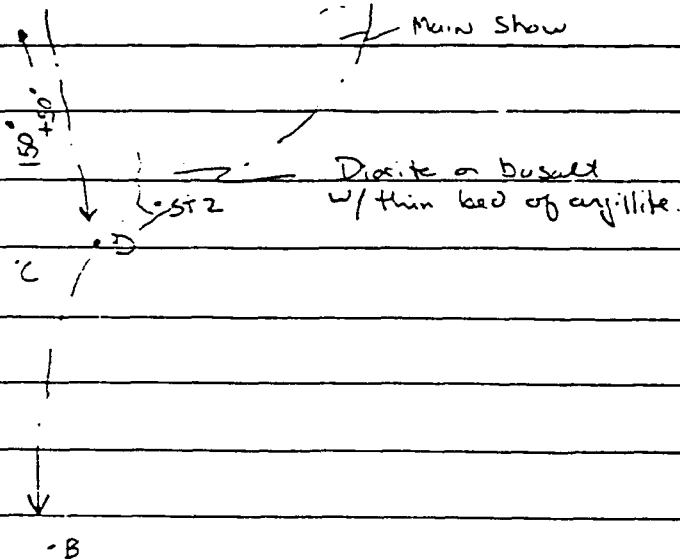 Main Show
150° +50°
Diorite or basalt
w/ thin bed of argillite.
ST2
D
C
B